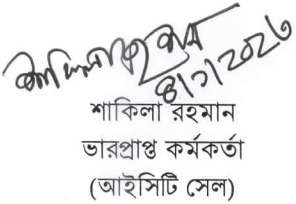 শাকিলা রহমান
ভারপ্রাপ্ত কর্মকর্তা
(আইসিটি সেল)